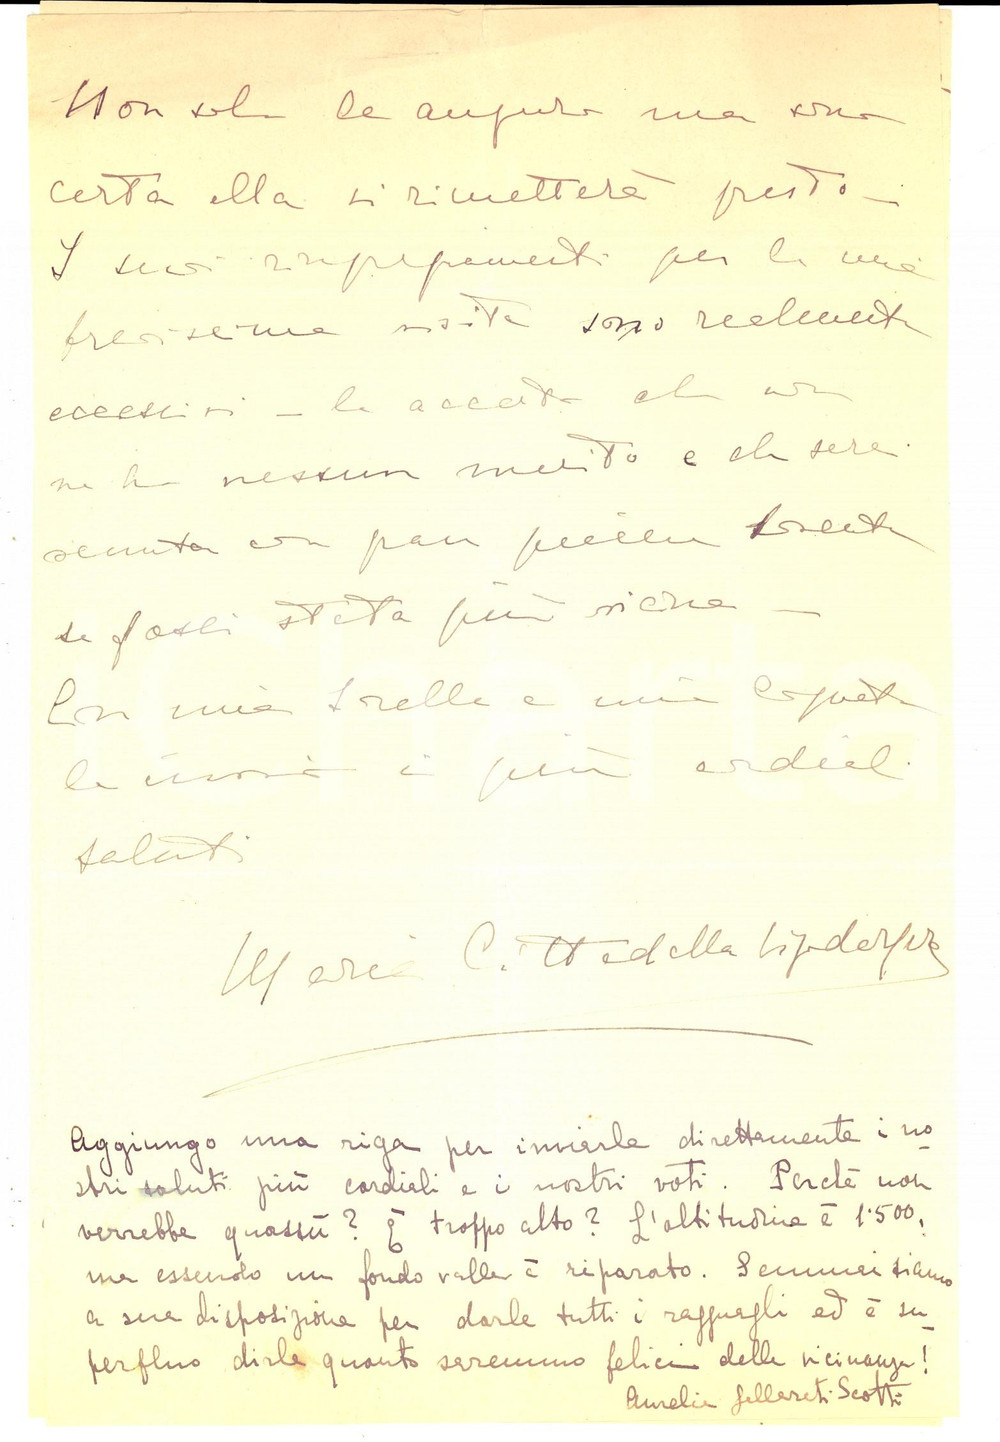 Non solo le auguro ma sono
certa ella si rimetterà presto –
I suoi ringraziamenti per la mia
brevissima visita sono realmente
eccessivi – la accerto che non
ne ho nessun merito e che sarei
venuta con gran piacere sovente
se fossi stata più vicina –
Con mia sorella e mia cognata
le invio i più cordiali
saluti
Maria Cittadella Vigodarzere
Aggiungo una riga per inviarle direttamente i no
stri saluti più cordiali e i nostri voti. Perchè non
verrebbe quassù? È troppo alto? L'altitudine è 1.500,
ma essendo un fondo valle è riparato. Semmai siamo
a sua disposizione per darle tutti i ragguagli ed è su-
perfluo dirle quanto saremmo felici della vicinanza!
Aurelia Scotti